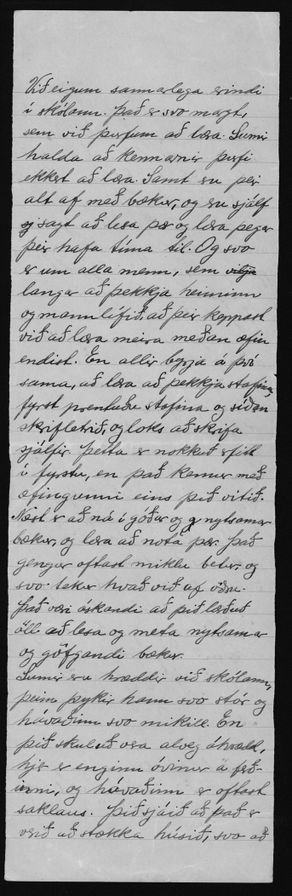 Við eigum sannarlega erindi
í skólann. Það er svo margt,
sem við þurfum að læra. Sumir
halda að kennarar þurfi
ekkert að læra. Samt eru þeir
alt af með bækur, og eru sjálf
sagt að lesa þær og læra þegar
þeir hafa tíma til. Og svo
er um alla menn, sem
langar að þekkja heiminn
og mannlífið, að þeir keppast
við að læra meira meðan æfin
endist. En allir byrja á því
sama, að læra að þekkja stafina,
fyrst prentaða stafina og síðan
skrifletrið, og loks að skrifa
sjálfir. Þetta er nokkuð erfitt
í fyrstu, en það kemur með
æfingunni eins þið vitið.
Næst er að ná í góðar og nytsamar
bækur, og læra að nota þær. Það
gengur oftast miklu betur, og
svo tekur hvað við af öðru.
Það væri óskandi að þið lærðuð
öll að lesa og meta nytsamar
og göfgandi bækur.
Sumir eru hræddir við skólann,
þeim þykir hann svo stór og
hávaðinn svo mikill. En
þið skuluð vera alveg óhrædd,
hjer er enginn óvinur á ferð-
inni, og hávaðinn er oftast
saklaus. Þið sjáið að það er
verið að stækka húsið, svo að